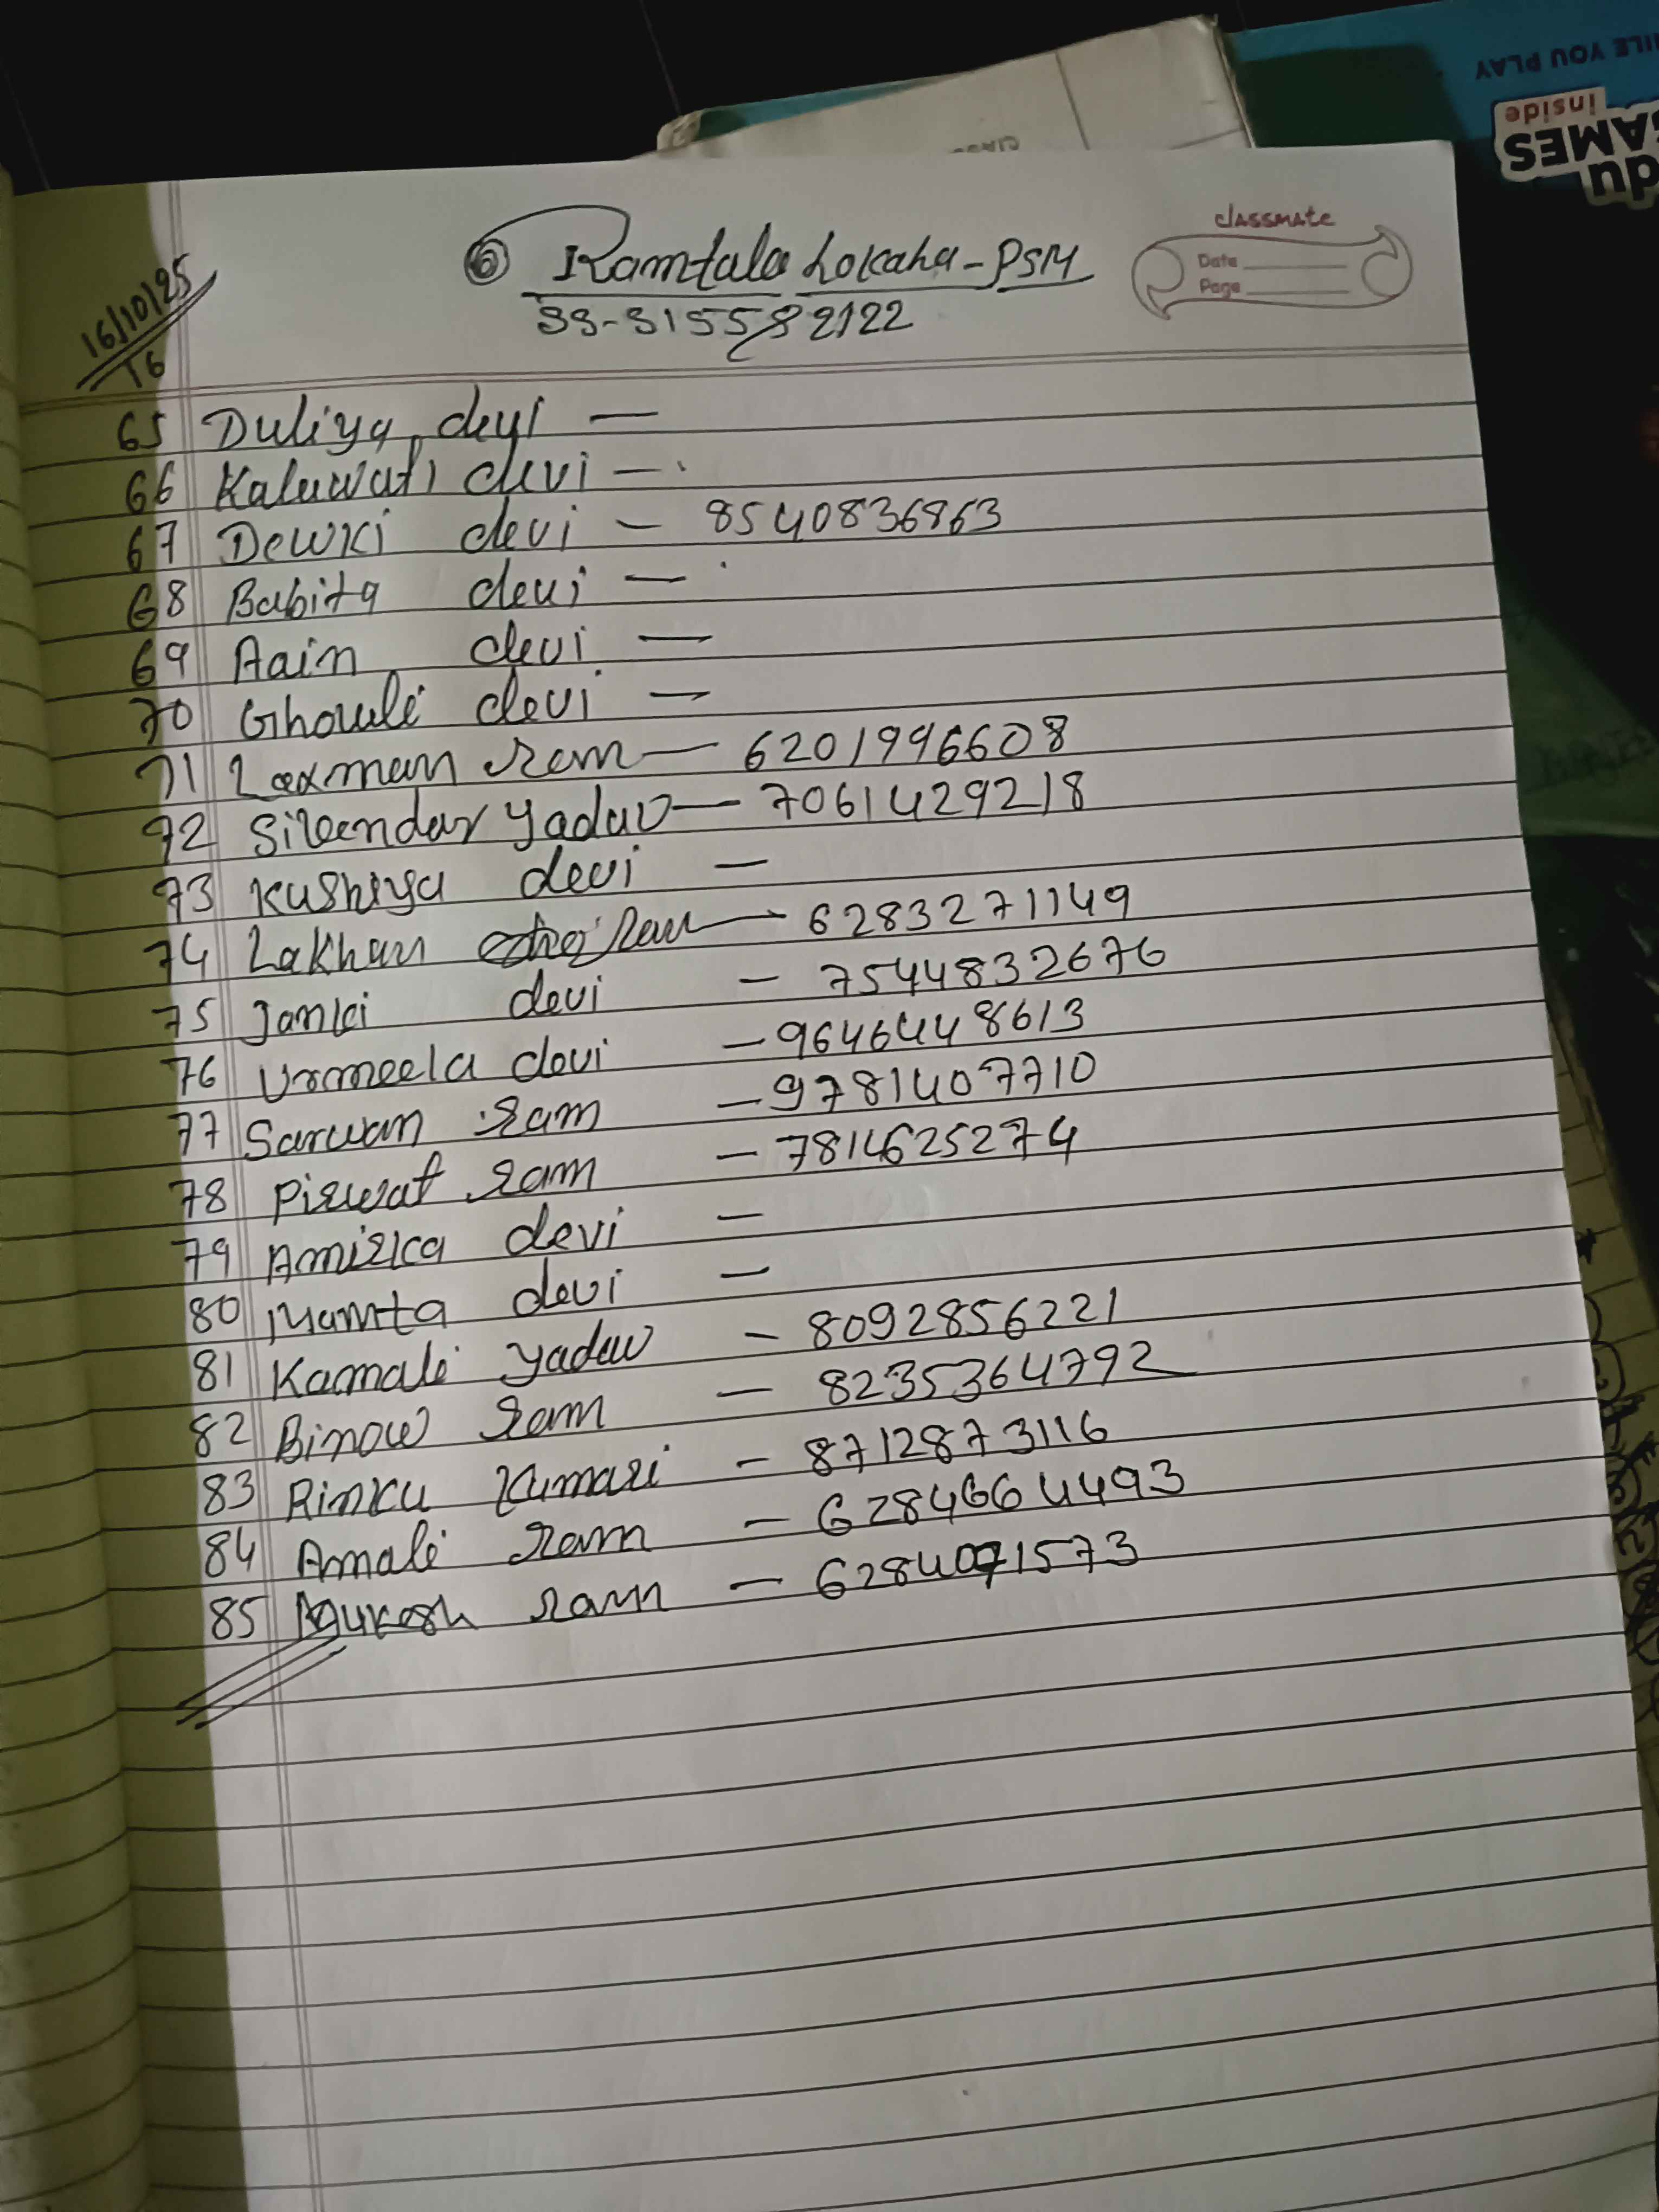 WHILE YOU PLAY
inside
GAMES
du
CLASS
classmate
Date
Page
16/10/25
T6
6 Ramtala Lokaha - PSM
33-315582122
65 Duliya devi —
66 Kaluwati devi —
67 Dewki devi — 8540836863
68 Babita devi —
69 Aain devi —
70 Ghouli devi —
71 Laxman Ram — 6201996608
72 Silendar yadav — 7061429218
73 Kushiya devi —
74 Lakhan Ram — 6283271149
75 Janki devi — 7544832676
76 Urmeela devi — 9646448613
77 Sarwan Ram — 9781407710
78 Pirwat Ram — 7814625274
79 Amirka devi —
80 Mamta devi —
81 Kamali yadav — 8092856221
82 Binow Ram — 8235364792
83 Rinku Kumari — 8712873116
84 Amali Ram — 6284664493
85 Mukesh Ram — 6284071573